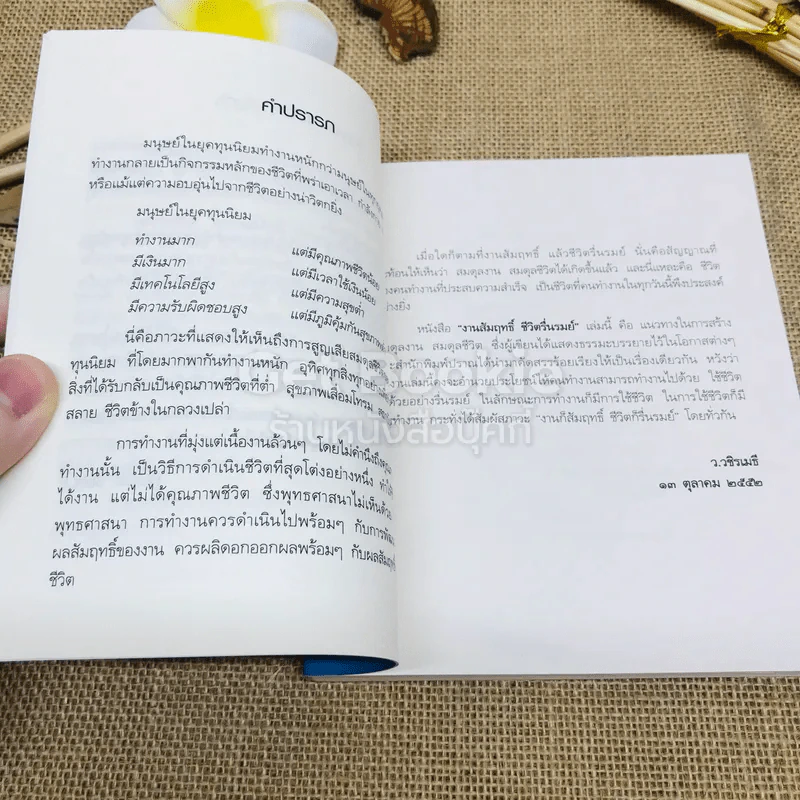 คำปรารภ
มนุษย์ในยุคทุนนิยมทำงานหนักกว่ามนุษย์ในทุก
ทำงานกลายเป็นกิจกรรมหลักของชีวิตที่พร่าเอาเวลา
หรือแม้แต่ความอบอุ่นไปจากชีวิตอย่างน่าวิตกยิ่ง
มนุษย์ในยุคทุนนิยม
ทำงานมาก แต่มีคุณภาพชีวิตน้อย
มีเงินมาก แต่มีเวลาใช้เงินน้อย
มีเทคโนโลยีสูง แต่มีความสุขต่ำ
มีความรับผิดชอบสูง แต่มีภูมิคุ้มกันสุขภาพ
นี่คือภาวะที่แสดงให้เห็นถึงการสูญเสียสมดุล
ทุนนิยม ที่โดยมากพากันทำงานหนัก อุทิศทุกสิ่งทุกอย่าง
สิ่งที่ได้รับกลับเป็นคุณภาพชีวิตที่ต่ำ สุขภาพเสื่อมโทรม
สลาย ชีวิตข้างในกลวงเปล่า
การทำงานที่มุ่งแต่เนื้องานล้วนๆ โดยไม่คำนึงถึง
ทำงานนั้น เป็นวิธีการดำเนินชีวิตที่สุดโต่งอย่างหนึ่ง
ได้งาน แต่ไม่ได้คุณภาพชีวิต ซึ่งพุทธศาสนาไม่เห็นด้วย
พุทธศาสนา การทำงานควรดำเนินไปพร้อมๆ กับการ
ผลสัมฤทธิ์ของงาน ควรผลิดอกออกผลพร้อมๆ กับผลสัมฤทธิ์
ชีวิต
เมื่อใดก็ตามที่งานสัมฤทธิ์ แล้วชีวิตรื่นรมย์ นั่นคือสัญญาณที่
ท้อนให้เห็นว่า สมดุลงาน สมดุลชีวิตได้เกิดขึ้นแล้ว และนี่แหละคือ ชีวิต
องคนทำงานที่ประสบความสำเร็จ เป็นชีวิตที่คนทำงานในทุกวันนี้พึงประสงค์
ย่างยิ่ง
หนังสือ “งานสัมฤทธิ์ ชีวิตรื่นรมย์” เล่มนี้ คือ แนวทางในการสร้าง
มดุลงาน สมดุลชีวิต ซึ่งผู้เขียนได้แสดงธรรมะบรรยายไว้ในโอกาสต่างๆ
ละสำนักพิมพ์ปราณได้นำมาคัดสรรร้อยเรียงให้เป็นเรื่องเดียวกัน หวังว่า
งานเล่มนี้คงจะอำนวยประโยชน์ให้คนทำงานสามารถทำงานไปด้วย ใช้ชีวิต
ด้วยอย่างรื่นรมย์ ในลักษณะการทำงานก็มีการใช้ชีวิต ในการใช้ชีวิตก็มี
ทำงาน กระทั่งได้สัมผัสภาวะ “งานก็สัมฤทธิ์ ชีวิตก็รื่นรมย์” โดยทั่วกัน
ว.วชิรเมธี
๑๓ ตุลาคม ๒๕๕๒
ร้านหนังสือบุ๊คกี้